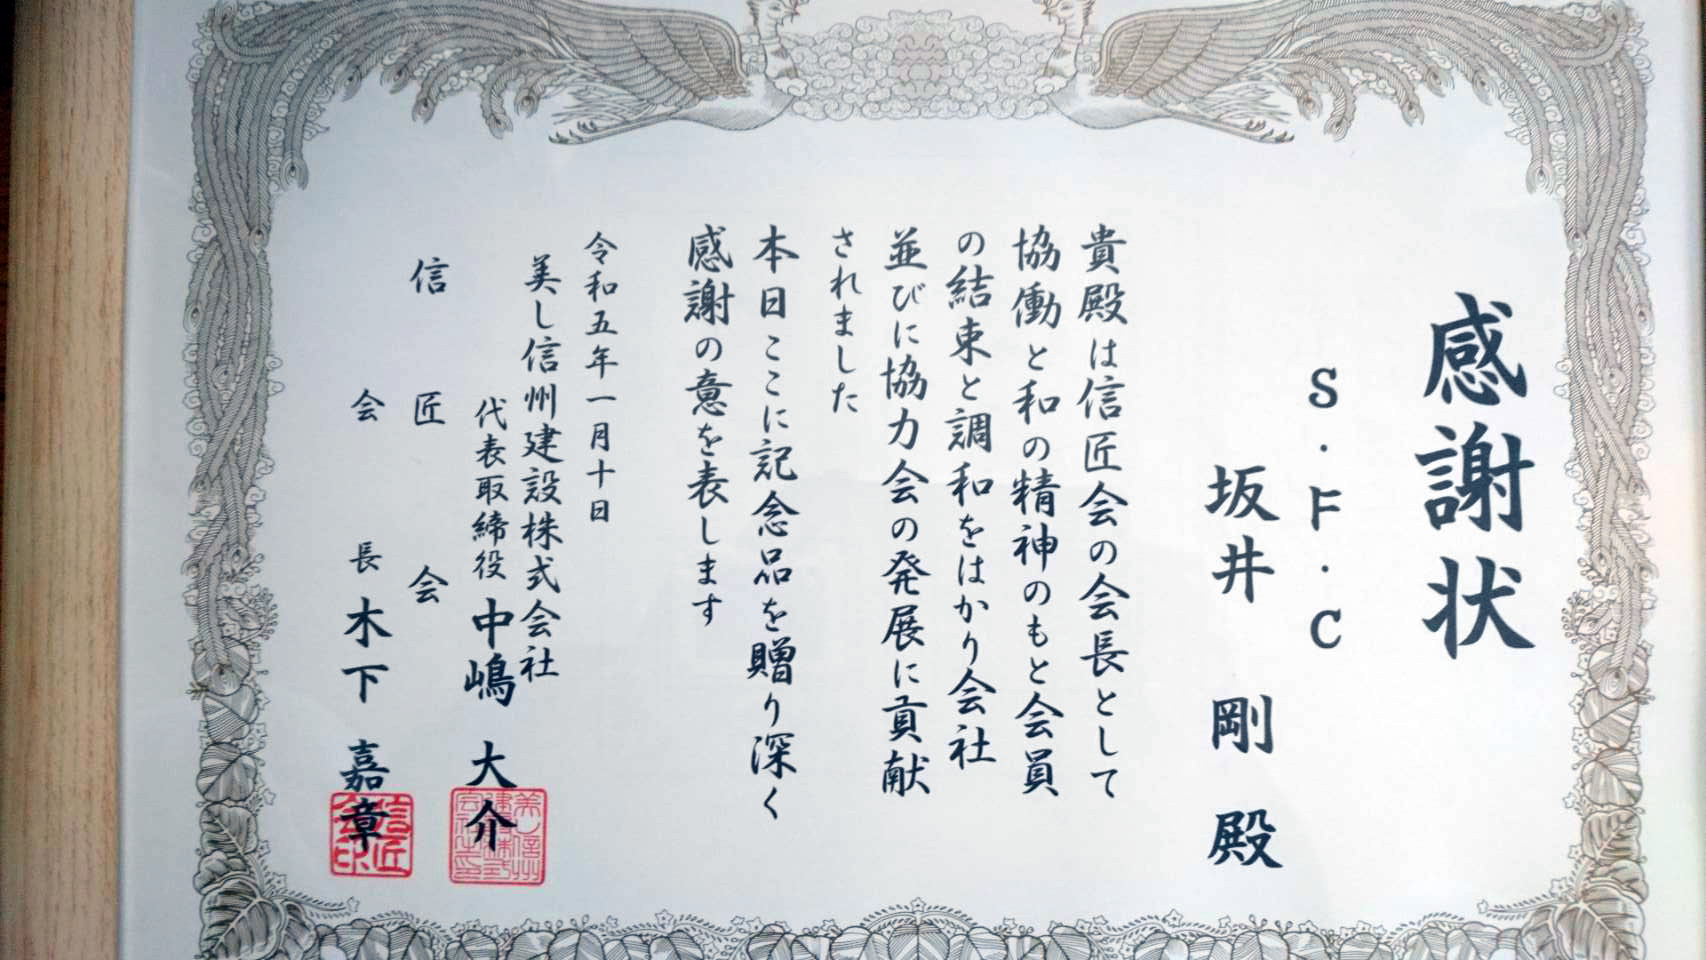 感謝状
S・F・C
坂井 剛 殿
貴殿は信匠会の会長として
協働と和の精神のもと会員
の結束と調和をはかり会社
並びに協力会の発展に貢献
されました
本日ここに記念品を贈り深く
感謝の意を表します
令和五年一月十日
美し信州建設株式会社
代表取締役 中嶋 大介
信匠会
会長 木下 嘉章